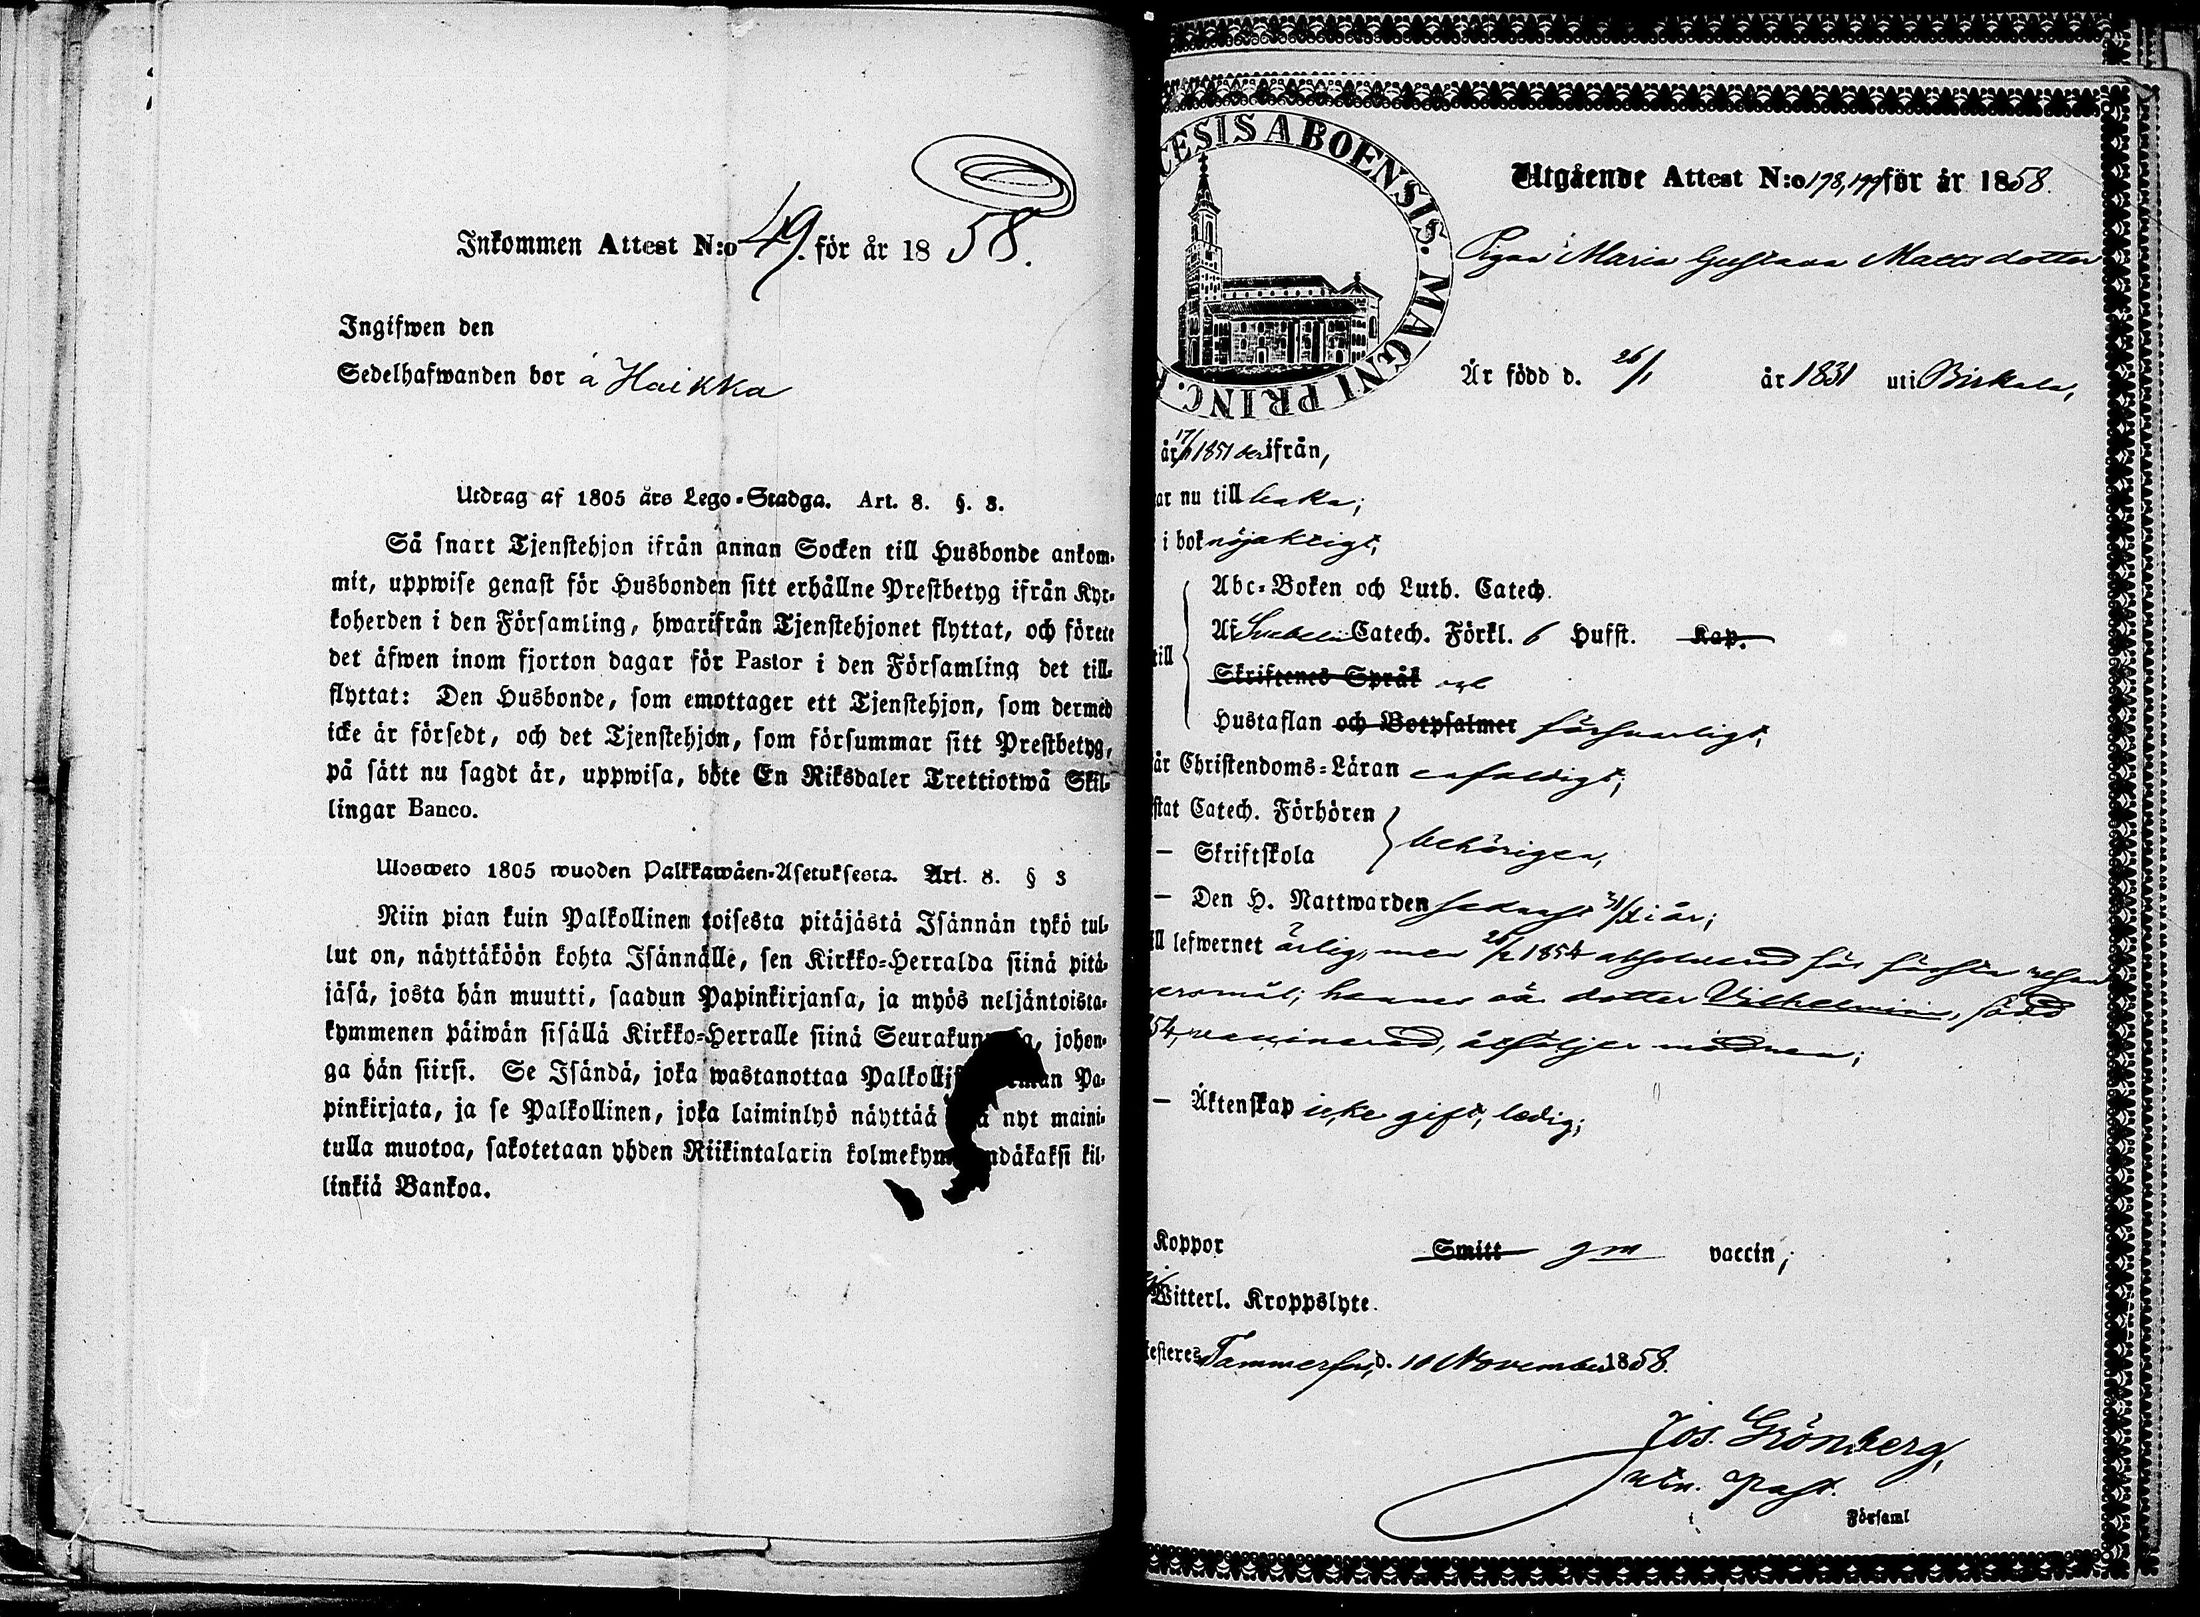 Inkommen Attest N:o 49. för år 1858.
Ingifwen den
Sedelhafwanden bor å Haikka
Utdrag af 1805 års Lego-Stadga. Art. 8. §. 3.
Så snart Tjenstehjon ifrån annan Socken till Husbonde ankom-
mit, uppwise genast för Husbonden sitt erhållne Prestbetyg ifrån Kyr-
koherden i den Församling, hwarifrån Tjenstehjonet flyttat, och förete
det äfwen inom fjorton dagar för Pastor i den Församling det till-
flyttat: Den Husbonde, som emottager ett Tjenstehjon, som dermed
icke är försedt, och det Tjenstehjon, som försummar sitt Prestbetyg,
på sätt nu sagdt är, uppwisa, böte En Riksdaler Trettiotwå Skil-
lingar Banco.
Ulosweto 1805 wuoden Palkkawäen-Asetuksesta. Art. 8. § 3
Niin pian kuin Palkollinen toisesta pitäjästä Isännän tykö tul-
lut on, näyttäköön kohta Isännälle, sen Kirkko-Herralda siinä pitä-
jäsä, josta hän muutti, saadun Papinkirjansa, ja myös neljäntoista-
kymmenen päiwän sisällä Kirkko-Herralle siinä Seurakun a, johon-
ga hän siirsi. Se Isändä, joka wastanottaa Palkollis man Pa-
pinkirjata, ja se Palkollinen, joka laiminlyö näyttää ä nyt maini-
tulla muotoa, sakotetaan yhden Riikintalarin kolmekym ndäkaksi kil-
linkiä Bankoa.
CESIS ABOENSIS. MAGNI PRINC.
Utgående Attest N:o 178, 177 för år 1858.
Pigan Maria Gustava Mattsdotter
Är född d. 26/1 år 1831 uti Birkala,
år 17/ 1851 derifrån,
ar nu tillbaka;
i bok nöjaktigt,
till
Abc-Boken och Luth. Catech.
Af Svebelii Catech. Förkl. 6 Hufst. Kap.
Skriftenes Språk och
Hustaflan och Botpsalmer försvarligt,
år Christendoms-Läran enfaldigt;
stat Catech. Förhören
— Skriftskola behörigen,
— Den H. Nattwarden sednast i år;
ll lefwernet ärlig, men 1854 absolverad för första resan
ersmål; hennes oä. dotter Vilhelmina, född
54, vaccinerad, åtföljer modren;
— Äktenskap icke gift, ledig;
Koppor Smitt gm vaccin;
Witterl. Kroppslyte.
esteres Tammerfors, d. 10 November 1858.
Jos. Grönberg,
v. Past.
i Församl